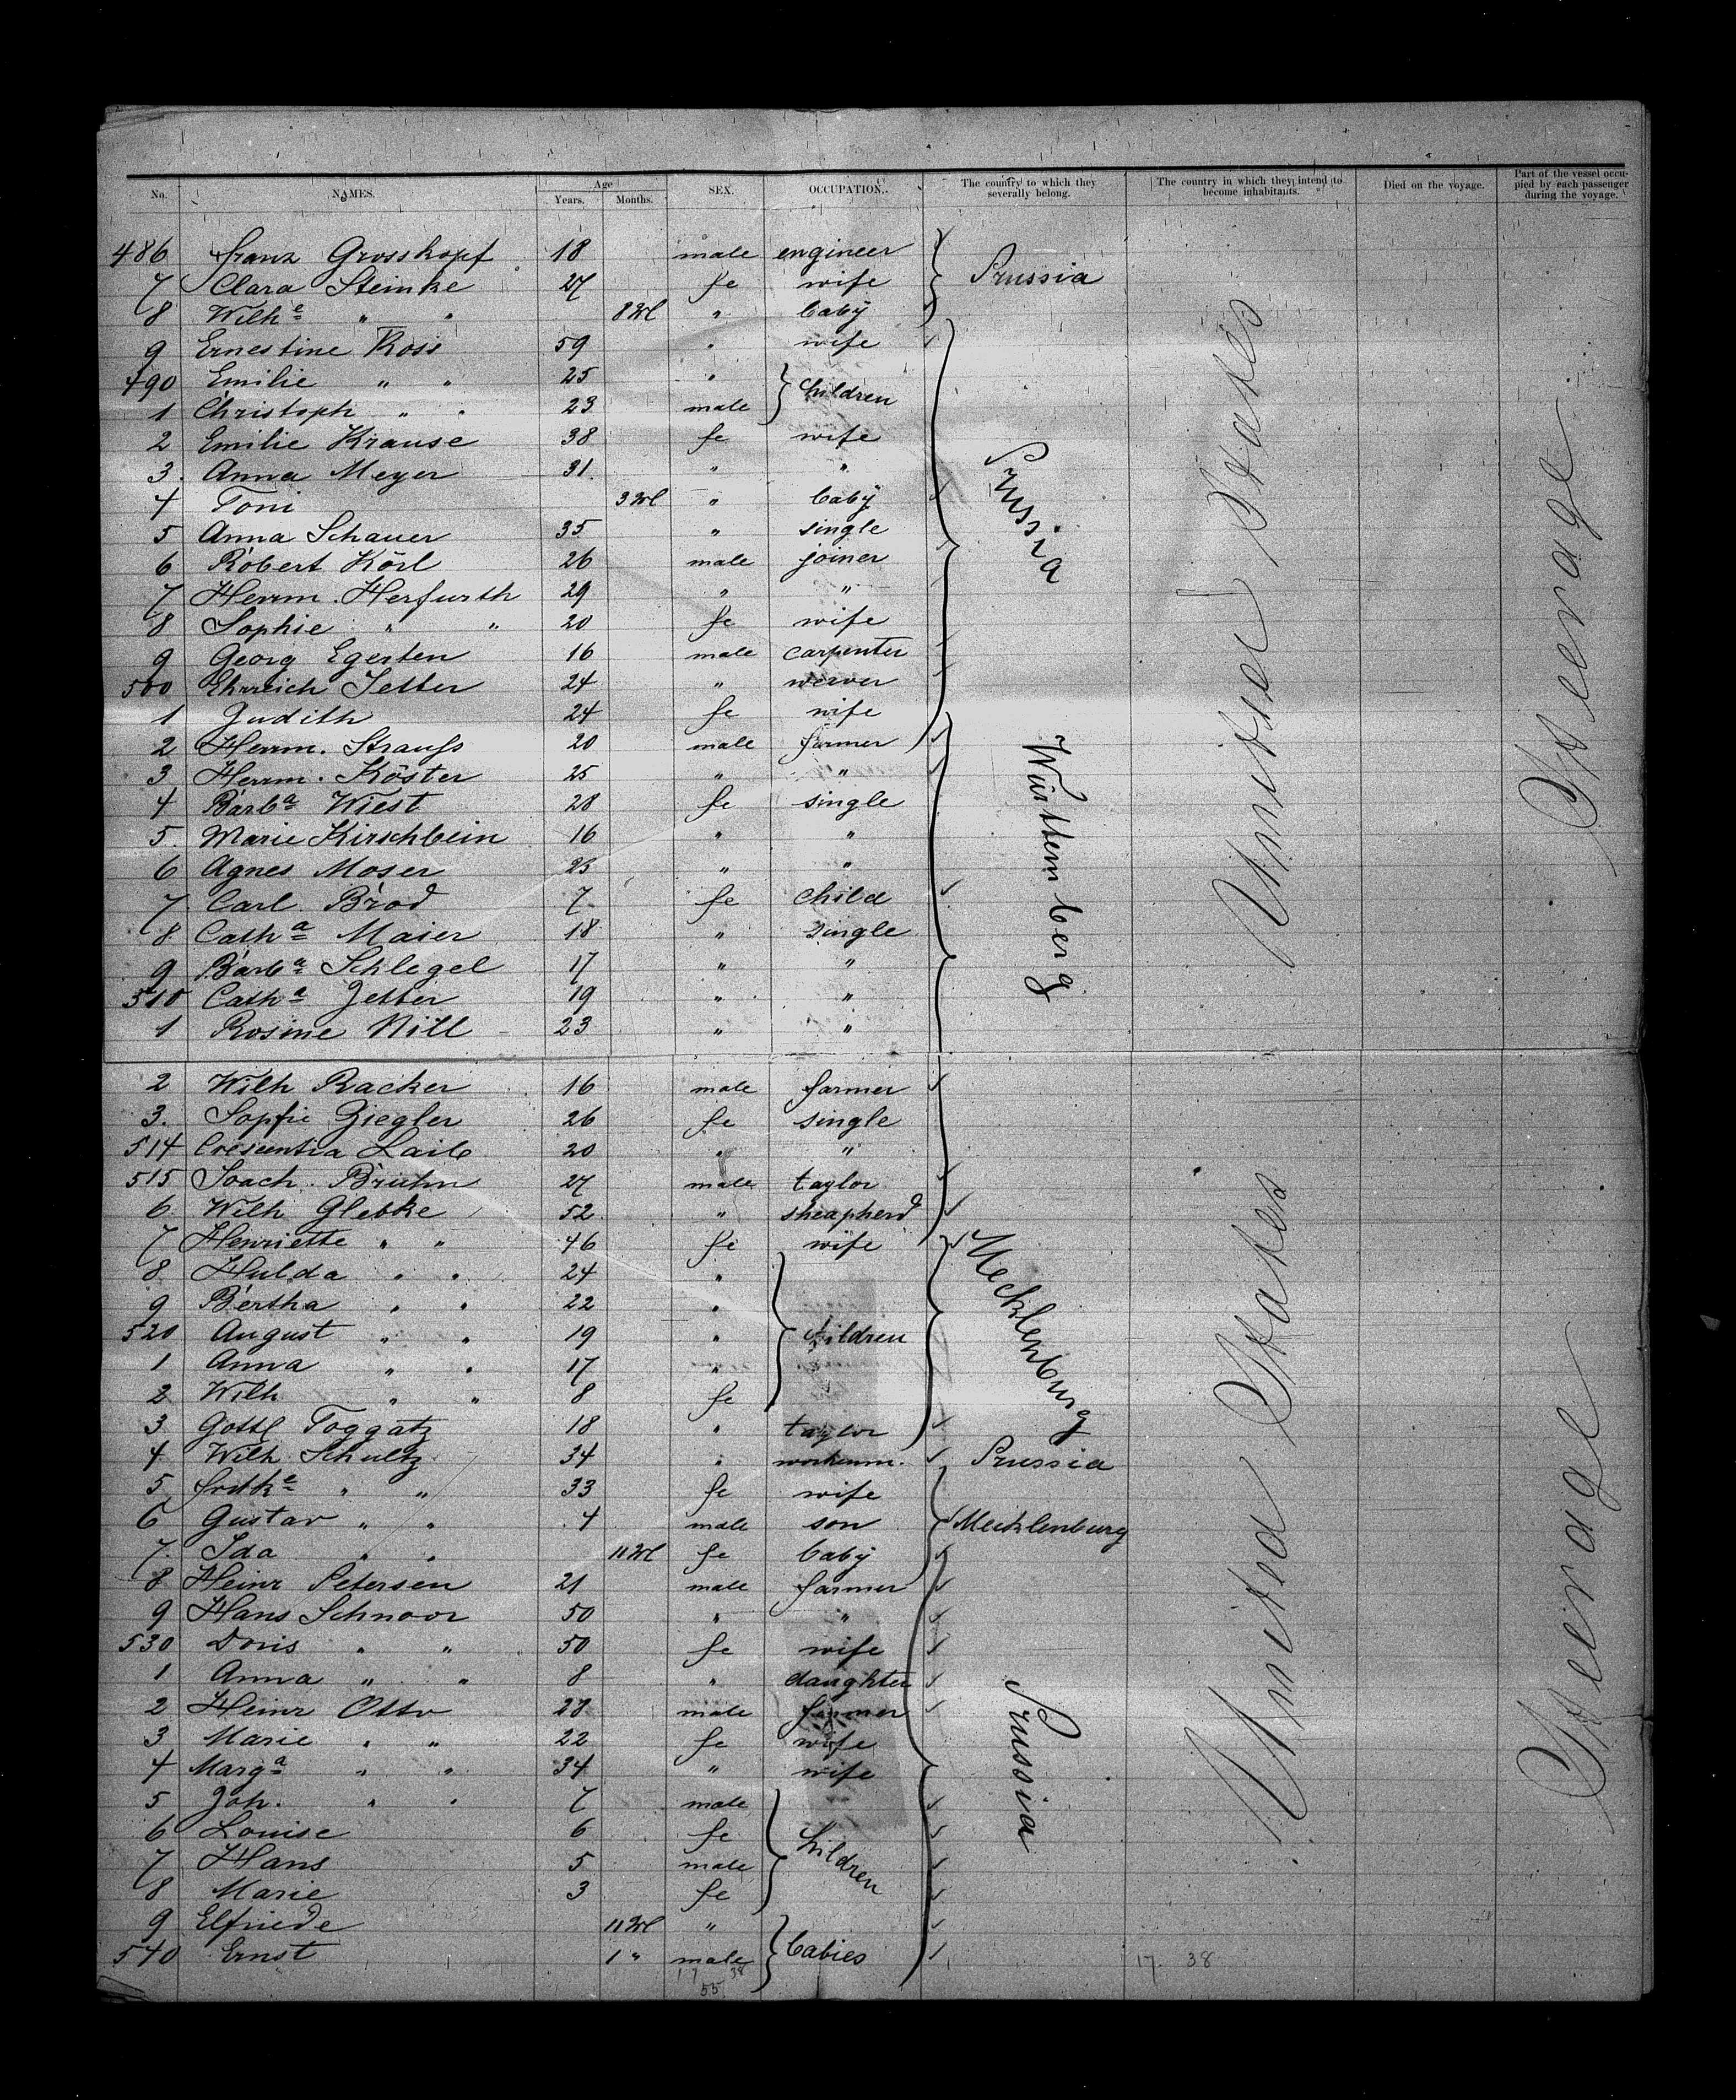 No. NAMES. Age Years. Months. SEX. OCCUPATION. The country to which they severally belong. The country in which they intend to become inhabitants. Died on the voyage. Part of the vessel occupied by each passenger during the voyage.
486 Franz Grosskopf 18 male engineer
7 Clara Steinke 27 fe wife Prussia
8 Wilhe " " 8 M " baby
9 Ernestine Ross 59 " wife
490 Emilie " " 25 " children
1 Christoph " " 23 male
2 Emilie Krause 38 fe wife
3 Anna Meyer 31 " "
4 Toni 3 M " baby Prussia
5 Anna Schauer 35 " single
6 Robert Körl 26 male joiner
7 Herrm. Herfurth 29 " "
8 Sophie " " 20 fe wife
9 Georg Egerten 16 male carpenter
500 Ehrreich Jetter 24 " werver
1 Judith 24 fe wife
2 Herrm. Strauss 20 male farmer
3 Herrm. Köster 25 " "
4 Barba Wiest 28 fe single
5 Marie Kirschbein 16 " " Württemberg
6 Agnes Moser 23 " "
7 Carl Brod 7 fe child
8 Catha Maier 18 " single
9 Barba Schlegel 17 " "
510 Catha Jetter 19 " "
1 Rosine Nill 23 " "
2 Wilh Racker 16 male farmer
3. Sopfie Ziegler 26 fe single
514 Crescentia Laib 20 " "
515 Joach. Brühn 27 male taylor
6 Wilh Glebke 52 " sheapherd
7 Henriette " " 46 fe wife
8 Hulda " " 24 "
9 Bertha " " 22 " Mecklenburg
520 August " " 19 " children
1 Anna " " 17 "
2 Wilh " " 8 fe
3 Gottl Toggatz 18 " taylor
4 Wilh Schultz 34 " workmm. Prussia
5 Fridke " " 33 fe wife
6 Gustav " " 4 male son Mecklenburg
7 Ida " " 11 M fe baby
8 Heinr Petersen 21 male farmer
9 Hans Schnoor 50 " "
530 Doris " " 50 fe wife
1 Anna " " 8 " daughter
2 Heinr Otto 28 male farmer
3 Marie " " 22 fe wife Prussia
4 Marga " " 34 " wife
5 Joh. " " 7 male
6 Louise 6 fe children
7 Hans 5 male
8 Marie 3 fe
9 Elfriede 11 M "
540 Ernst 1 " male babies
17 38
55
17 38
United States
United States
Steerage
Steerage